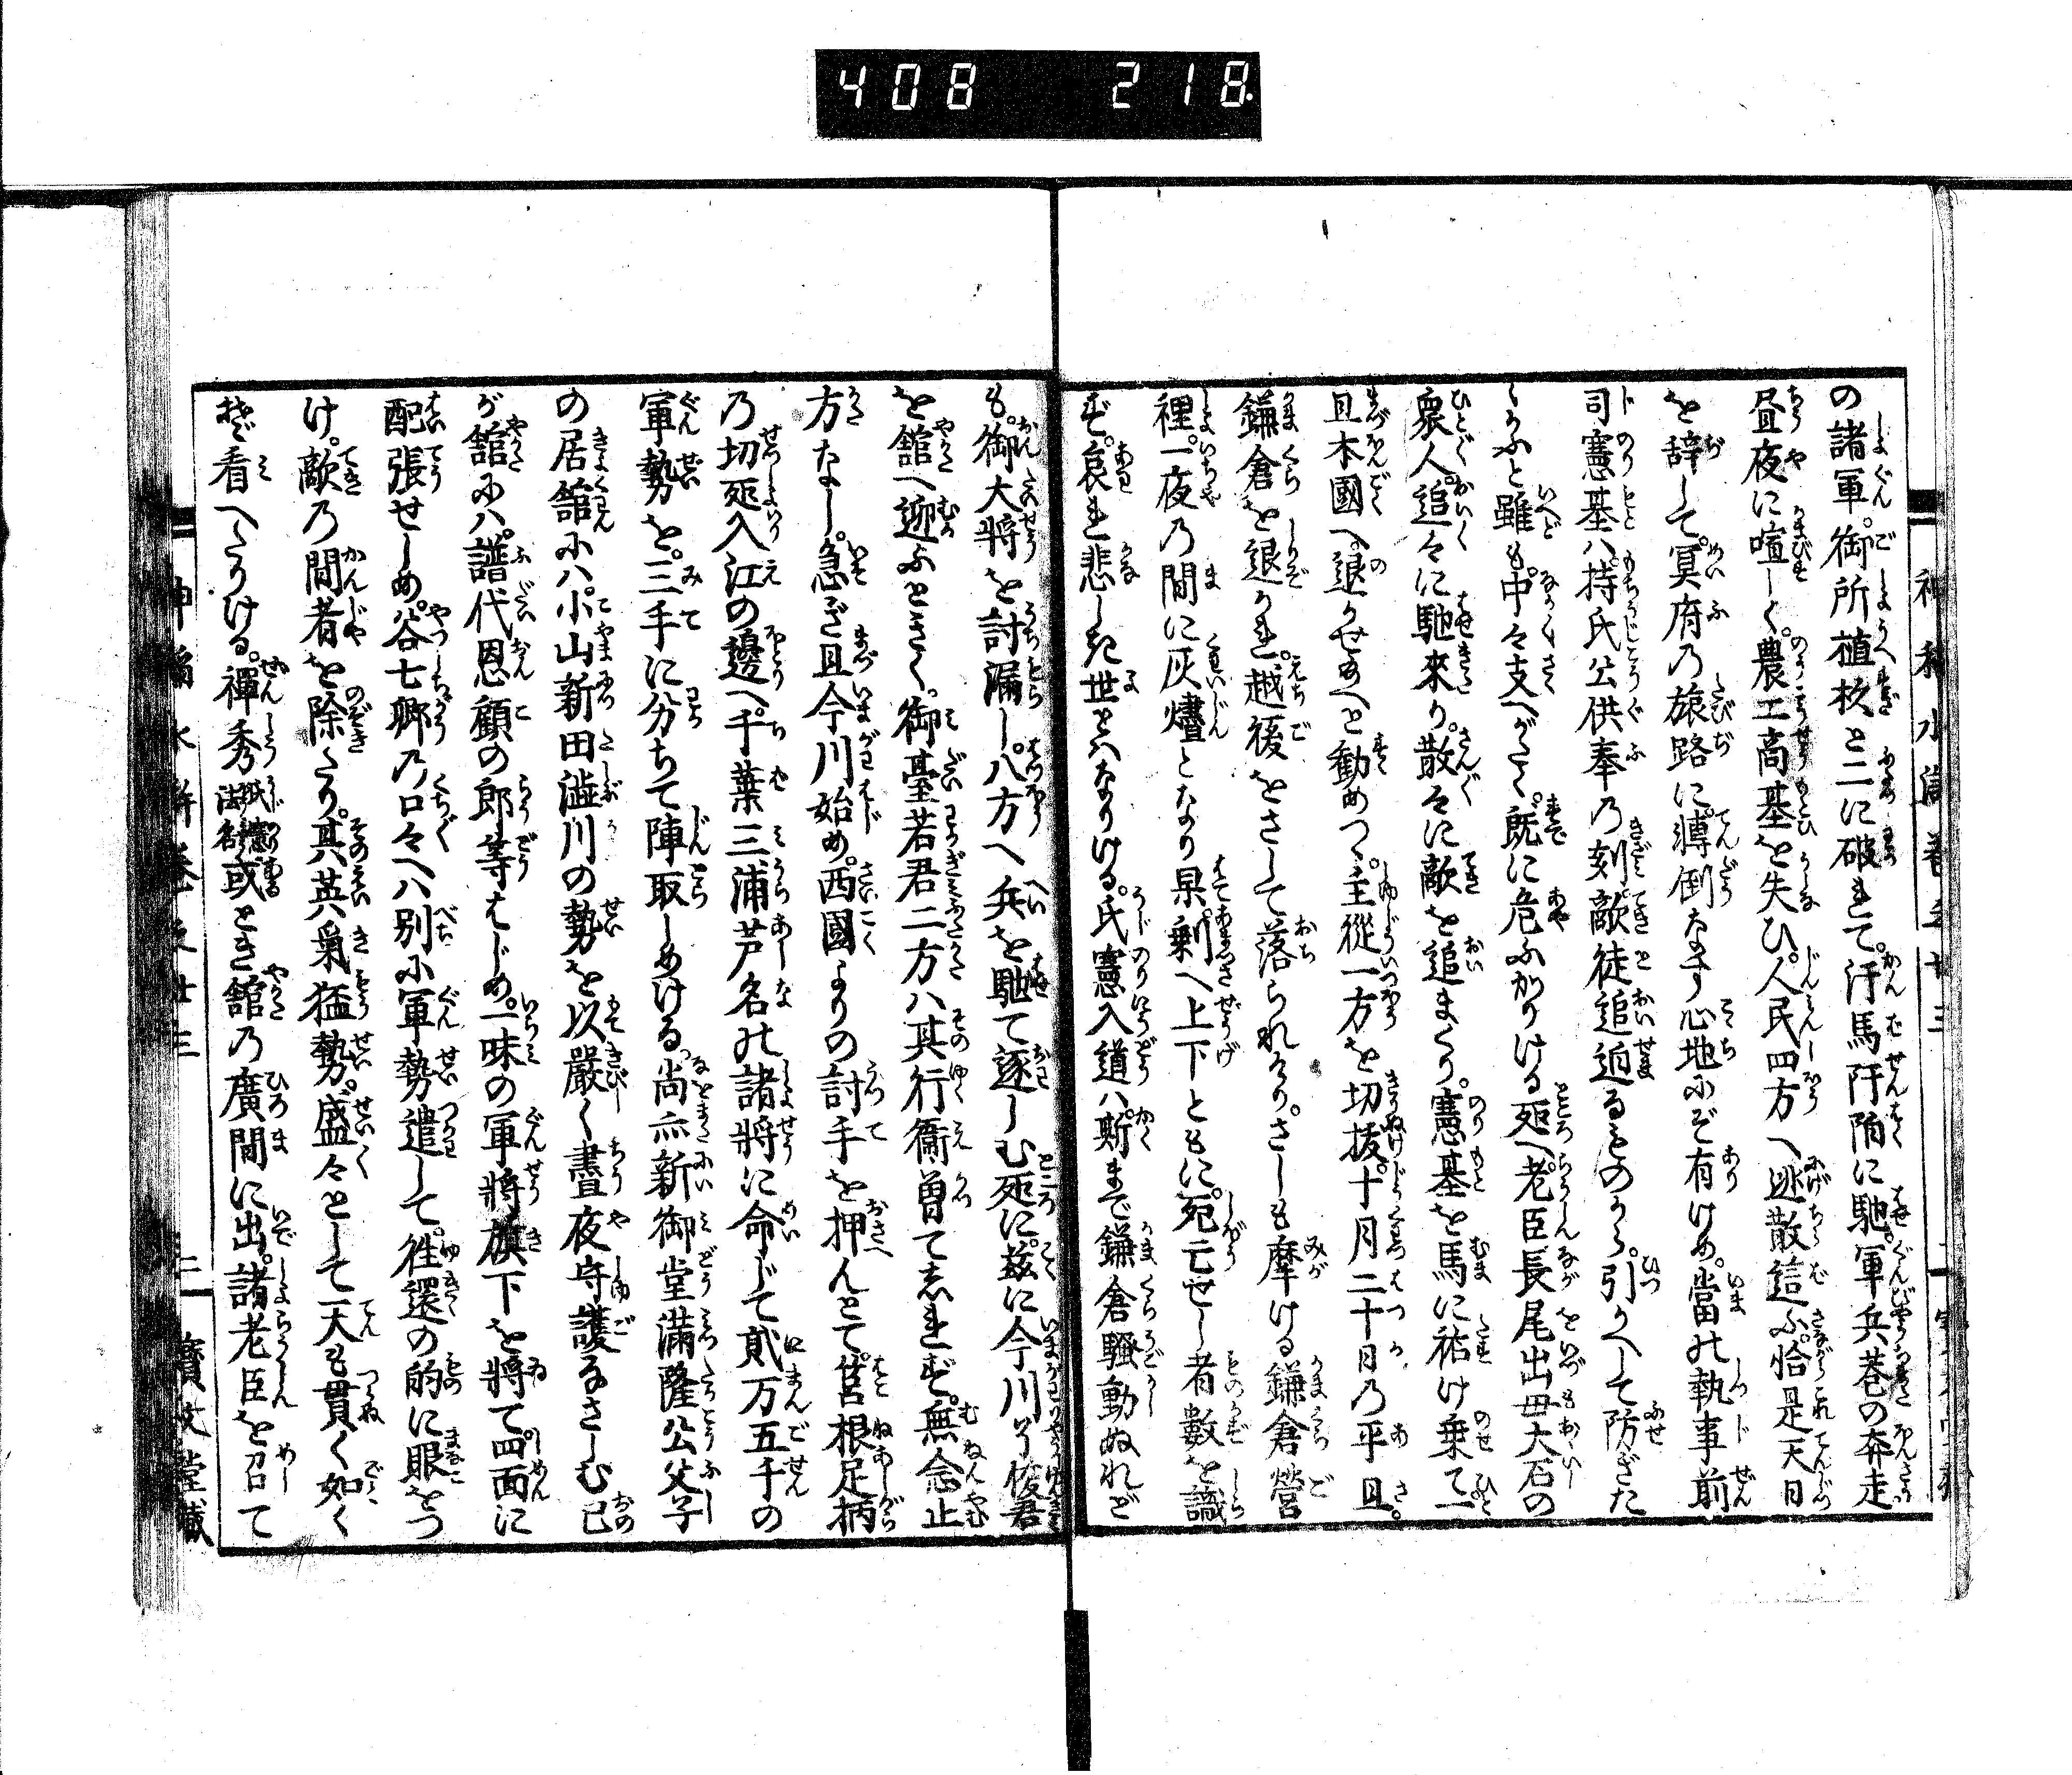 408 218.
の諸軍。御所植杉と二に破れて。汗馬阡陌に馳。軍兵巷の奔走
昼夜に喧しく。農工商基を失ひ。人民四方へ迯散這ふ。恰是天日
を辞して。冥府乃旅路に。轉倒なす心地ぞ有ける。當の執事前
司憲基ハ。持氏公供奉乃刻敵徒追迫るものから。引かへして防ぎた
ふと雖も。中々支へがたく。既に危ふかりける処へ。老臣長尾出毋大石の
衆人。追々に馳來り。散々に敵を追まくり。憲基を馬に祐け乗て一
且本國へ。退かせ給へと勸めつゝ。主從一方を切抜。十月二十日乃平旦。
鎌倉を退かれ。越後をさして落られたり。さしも摩ける鎌倉營
裡。一夜乃間に灰燼となり果。剰へ上下ともに。死亡せし者數を識
ず。哀れ悲しき世とハなりける。氏憲入道ハ。斯まで鎌倉騒動ぬれど
も。御大將を討漏し。八方へ兵を馳て逐しむ処に。茲に今川了俊君
を舘へ迎ふときく。御臺若君二方ハ其行衞曽て志れず。無念止
方なし。急ぎ且今川始め。西國よりの討手を押んとて。筥根足柄
乃切処入江の邊へ。千葉三浦芦名の諸將に命じて貳万五千の
軍勢を。三手に分ちて陣取しめける。尚亦新御堂滿隆公父子
の居舘にハ。小山新田澁川の勢を以嚴く晝夜守護なさしむ己
が舘にハ。譜代恩顧の郎等はじめ。一味の軍將旗下を將て四面に
配張せしめ。谷七郷乃口々へハ別に軍勢遣して。徃還の的に眼をつ
け。敵乃間者を除たり。其英氣猛勢。盛々として一天も貫く如く
ぞ看へたりける。禪秀氏憲法名或とき舘乃廣間に出。諸老臣を召て
三
寳文堂藏